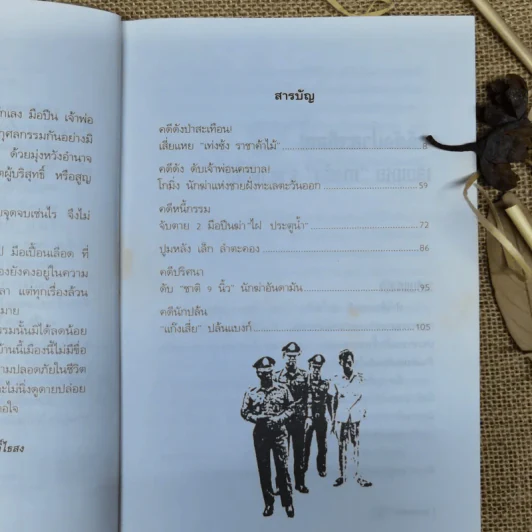 กเลง มือปืน เจ้าพ่อ
กุศลกรรมกันอย่างมี
ด้วยมุ่งหวังอำนาจ
ผู้บริสุทธิ์ หรือสูญ
จุดจบเช่นไร จึงไม่
มือเปื้อนเลือด ที่
องยังคงอยู่ในความ
ลา แต่ทุกเรื่องล้วน
มาย
รมนั้นมิได้ลดน้อย
บ้านนี้เมืองนี้ไม่มีขื่อ
ามปลอดภัยในชีวิต
ะไม่นิ่งดูดายปล่อย
อใจ
สารบัญ
คดีดังป่าสะเทือน!
เสี่ยแหย "เท่งซ้ง ราชาค้าไม้" 8
คดีดัง ดับเจ้าพ่อนครบาล!
โกมิ่ง นักฆ่าแห่งชายฝั่งทะเลตะวันออก 59
คดีหนี้กรรม
จับตาย 2 มือปืนฆ่า "ไฝ ประตูน้ำ" 72
ปูมหลัง เล็ก ลำตะคอง 86
คดีปริศนา
ดับ "ชาติ 9 นิ้ว" นักฆ่าอันดามัน 95
คดีนักปล้น
"แก๊งเสี่ย" ปล้นแบงก์ 105